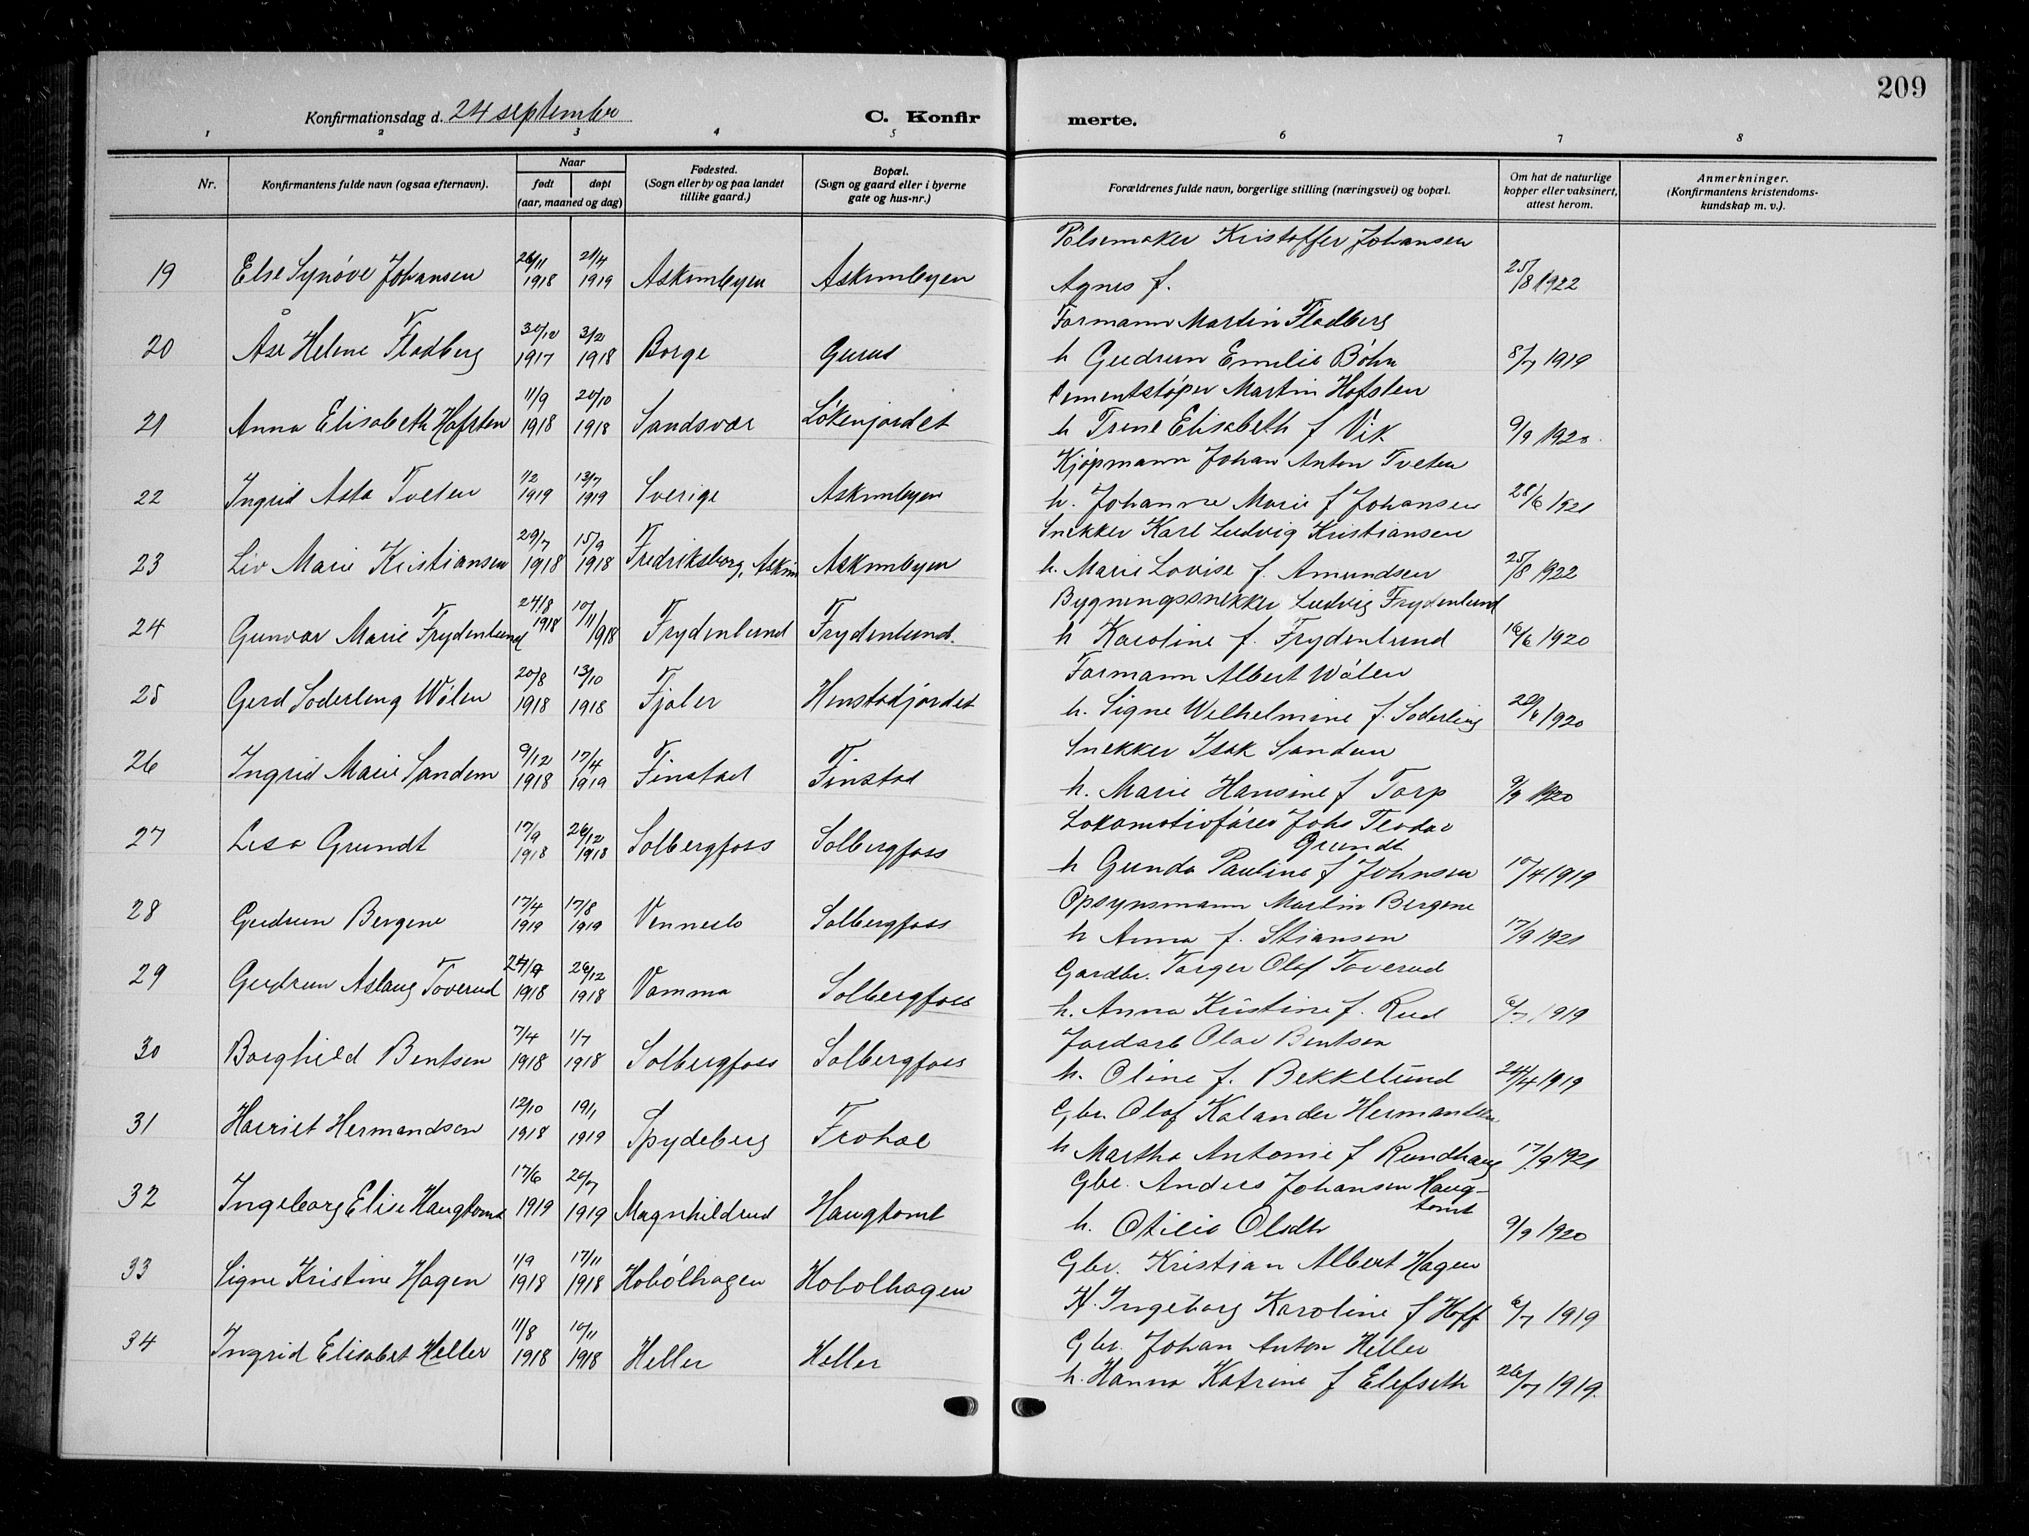 209
Konfirmationsdag d. 24 september C. Konfir merte.
1 2 3 4 5 6 7 8
Nr. Konfirmantens fulde navn (ogsaa efternavn). Naar født døpt (aar, maaned og dag) Fødested. (Sogn eller by og paa landet tillike gaard.) Bopæl. (Sogn og gaard eller i byerne gate og hus-nr.) Forældrenes fulde navn, borgerlige stilling (næringsvei) og bopæl. Om hat de naturlige kopper eller vaksinert, attest herom. Anmerkninger. (Konfirmantens kristendoms-kundskap m. v.).
Pølsemaker Kristoffer Johansen
19 Else Synøve Johansen 26/11 1918 21/4 1919 Askimbyen Askimbyen Agnes f. 25/8 1922
Formann Martin Flodberg
20 Åse Helene Flodberg 30/12 1917 3/2 1918 Borge Gurus h Gudrun Emilie Bøhn 8/7 1919
Sementstøper Martin Hofsten
21 Anna Elisabeth Hofsten 11/9 1918 20/10 1918 Sandsvær Løkenjordet h Trine Elisabeth f Vik 9/9 1920.
Kjøpmann Johan Anton Tveten
22 Ingrid Asta Tveten 1/2 1919 13/7 1919 Sverige Askimbyen h. Johanne Marie f Johansen 28/6 1921
Snekker Karl Ludvig Kristiansen
23 Liv Marie Kristiansen 29/7 1918 15/9 1918 Fredriksborg, Askim Askimbyen h. Marie Lovise f. Amundsen 25/8 1922
Bygningssnekker Ludvig Frydenlund
24 Gunvor Marie Frydenlund 24/8 1918 10/11 1918 Frydenlund Frydenlund. h Karoline f. Frydenlund 16/6 1920
Formann Albert Wølen
25 Gerd Soderling Wølen 20/8 1918 13/10 1918 Fjøler Henstadjordet h. Signe Wilhelmine f. Soderling 20/6 1920
Snekker Isak Sandem
26 Ingrid Marie Sandem 9/12 1918 17/4 1919 Finstad Finstad h. Marie Hansine f Torp 9/9 1920
Lokomotivfører Johs Teodor Grundt
27 Lesa Grundt 17/9 1918 26/12 1918 Solbergfoss Solbergfoss h Gunda Pauline f Johnsen 10/4 1919
Opsynsmann Martin Bergene
28 Gudrun Bergene 17/4 1919 17/8 1919 Vennesla Solbergfoss h Anna f. Stiansen 17/9 1921
Gardbr. Torger Olaf Toverud
29 Gudrun Aslaug Toverud 24/9 1918 26/12 1918 Vamma Solbergfoss h. Anna Kristine f. Rud 6/7 1919
Jordarb Olav Bentsen
30 Borghild Bentsen 7/4 1918 1/7 1918 Solbergfoss Solbergfoss h. Oline f. Bekkelund 24/4 1919
Gbr. Olaf Kalander Hermandsen
31 Harriet Hermandsen 12/10 1918 19/1 1919 Spydeberg Frohol h Martha Antonie f Rundhaug 17/9 1921
Gbr. Anders Johansen Haugtomt
32 Ingeborg Elise Haugtomt 17/6 1919 20/7 1919 Magnhildrud Haugtomt h. Otilie Olsdtr 9/9 1920
Gbr. Kristian Albert Hagen
33 Signe Kristine Hagen 1/9 1918 17/11 1918 Hobølhagen Hobolhagen H. Ingeborg Karoline f Hoff 6/7 1919
Gbr. Johan Anton Heller
34 Ingrid Elisabet Heller 11/8 1918 10/11 1918 Heller Heller h. Hanna Katrine f Elefseth 26/7 1919.